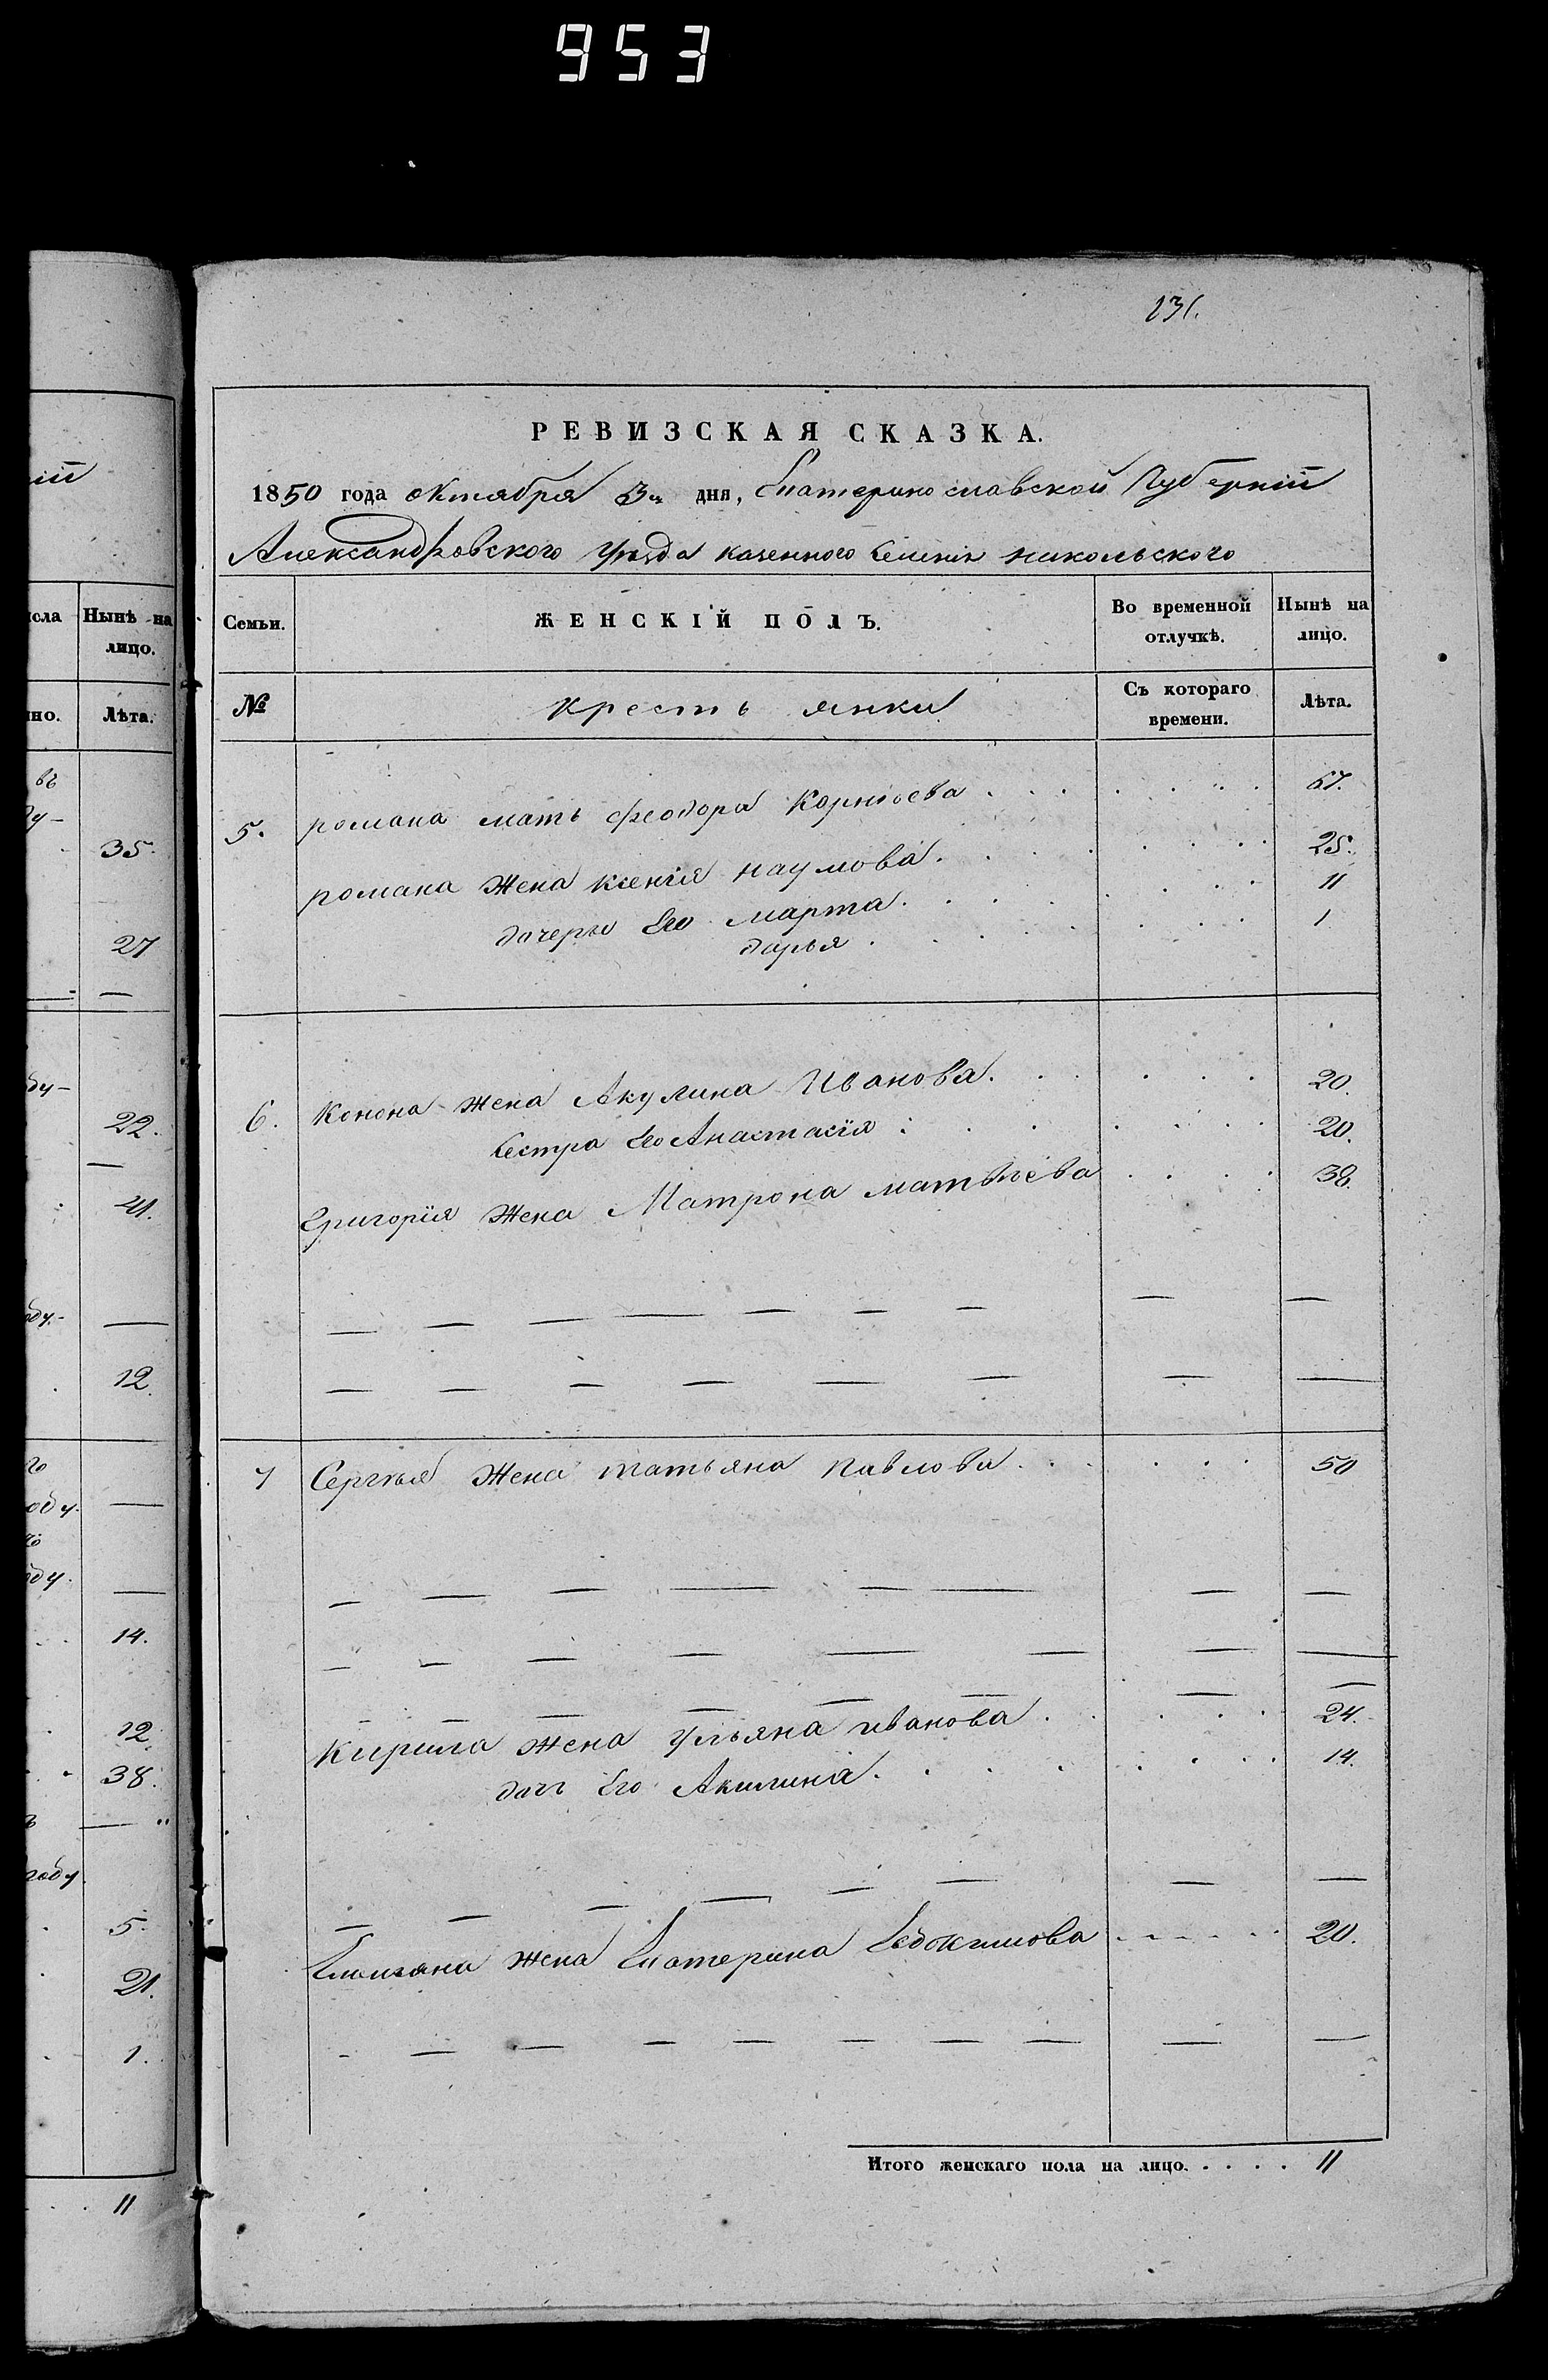 953
ій
сла
Нынѣ на
лицо.
но.
Лѣта.
въ
35.
27
ду-
22.
41.
оду.-
12.
го
оду.
оду.
14.
12
38.
году
5.
21.
1.
11
131.
РЕВИЗСКАЯ СКАЗКА.
1850 года октября 3го дня, Екатеринославской Губерніи
Александровского Уѣзда казенного Селенія никольского
Семьи.
ЖЕНСКІЙ ПОЛЪ.
Во временной
отлучкѣ.
Нынѣ на
лицо.
№
крестьянки
Съ котораго
времени.
Лѣта.
5. романа мать феодора Корнѣева 67.
романа жена ксенія наумова 25.
дочеры Его марта 11
дарья 1
6. Конона жена Акулина Иванова 20.
Сестра Его Анастасія 20.
Григорія жена Матрона матвѣева 38.
7 Сергѣя жена татьяна павлова 50
Кирила жена ульяна иванова 24.
дочь Его Акилина 14.
Емельяна жена Екатерина Евдокимова 20.
Итого женскаго пола на лицо. 11